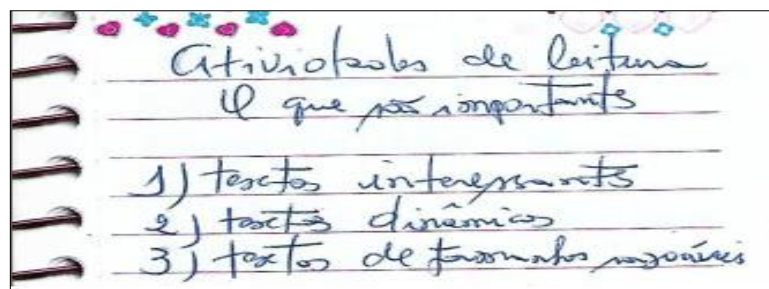 Atividades de leitura
O que são importants
1) textos interessants
2) textos dinâmicos
3) textos de tamanhos razoáveis